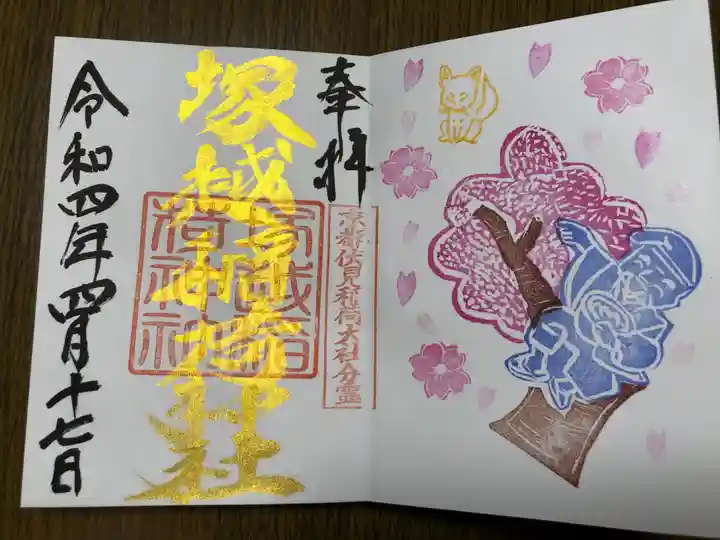 奉拝
京都伏見稲荷大社分霊
塚越
社
塚越稲
荷神社
令和四年四月十七日